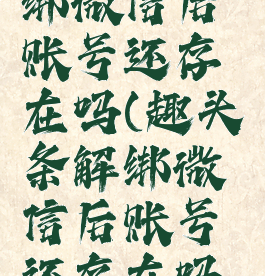 绑微信后
账号还存
在吗(趣头
条解绑微
信后账号
还存在吗